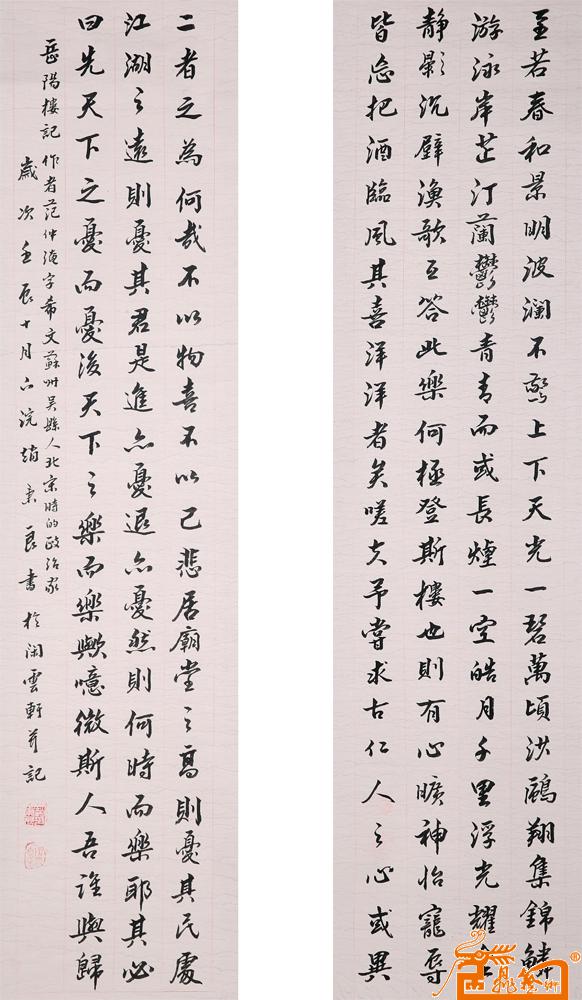 至若春和景明波瀾不驚上下天光一碧萬頃洪鷗翔集錦鱗
游泳岸芷汀蘭鬱鬱青青而或長煙一空皓月千里浮光耀金
靜影沉壁漁歌互答此樂何極登斯樓也則有心曠神怡寵辱
皆忘把酒臨風其喜洋洋者矣嗟夫予嘗求古仁人之心或異
二者之為何哉不以物喜不以己悲居廟堂之高則憂其民處
江湖之遠則憂其君是進亦憂退亦憂然則何時而樂耶其必
曰先天下之憂而憂後天下之樂而樂歟噫微斯人吾誰與歸
岳陽樓記 作者范仲淹字希文蘇州吳縣人北宋時的政治家
歲次壬辰十月下浣趙景良書於閑雲軒并記